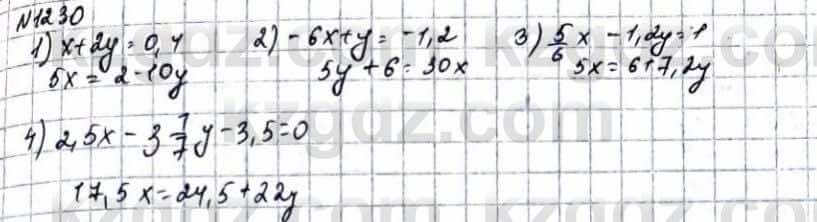 N1230
1) x+2y=0,4   2) -6x+y=-1,2   3) 5/6 x - 1,2y=1
5x = 2-10y   5y+6=30x   5x=6+7,2y
4) 2,5x - 3 1/7 y - 3,5=0
17,5x=24,5+22y
kzgdz.com